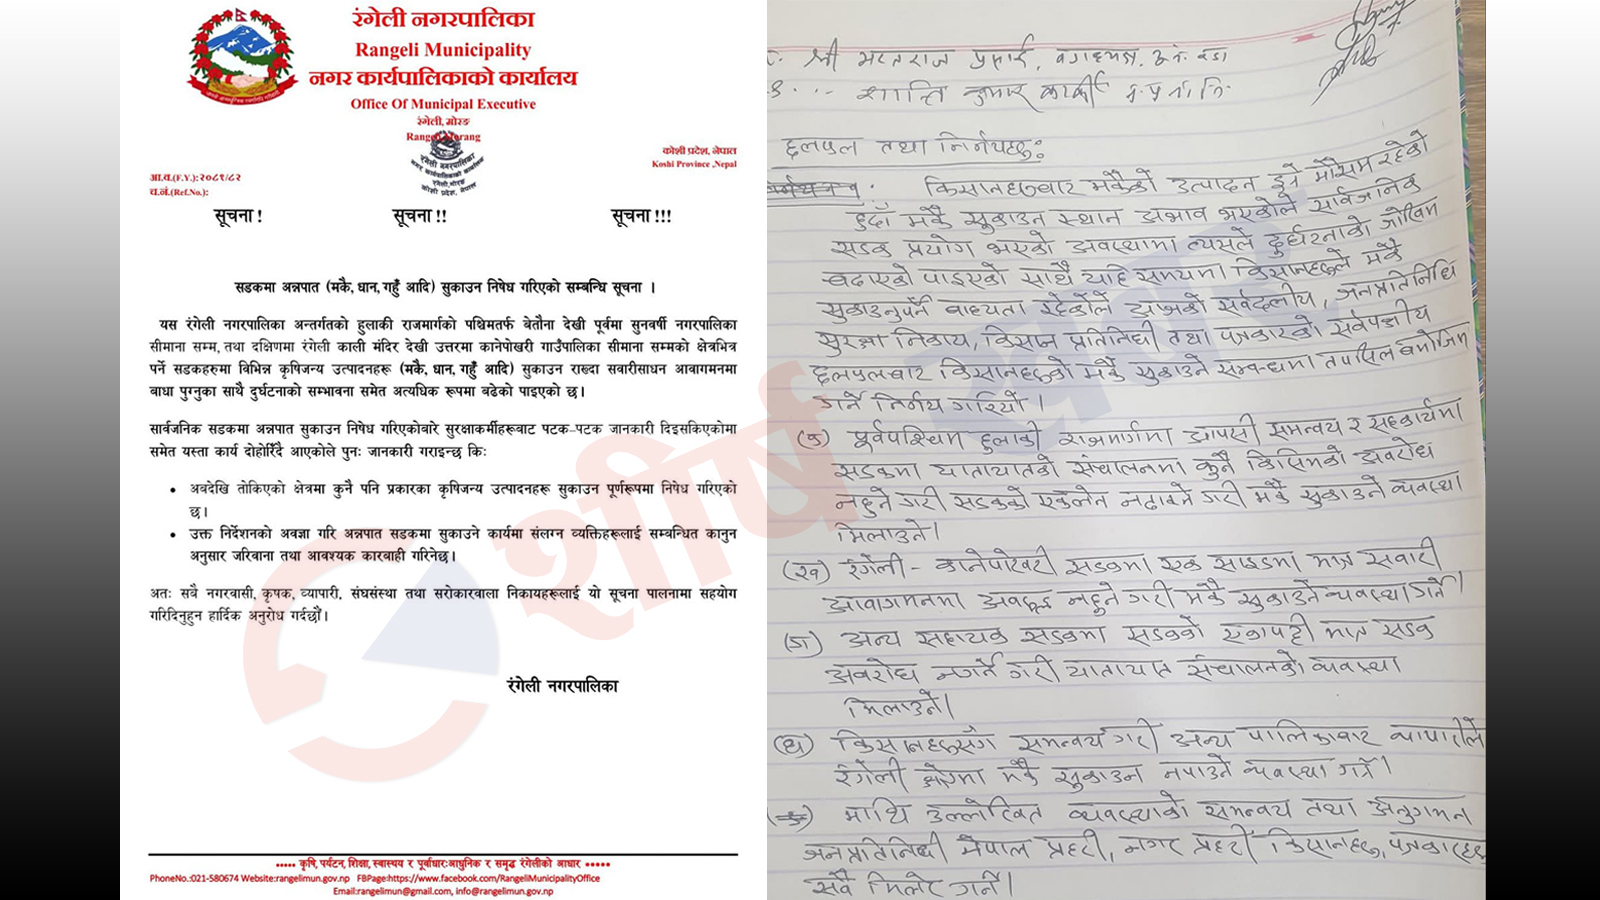 रंगेली नगरपालिका
Rangeli Municipality
नगर कार्यपालिकाको कार्यालय
Office Of Municipal Executive
रंगेली, मोरङ
Rangeli Morang
रंगेली नगरपालिका
नगर कार्यपालिकाको कार्यालय
रंगेली, मोरङ
कोशी प्रदेश, नेपाल
कोशी प्रदेश, नेपाल
Koshi Province ,Nepal
आ.व.(F.Y.):२०८१/८२
च.नं.(Ref.No.):
सूचना ! सूचना !! सूचना !!!
सडकमा अन्नपात (मकै, धान, गहुँ आदि) सुकाउन निषेध गरिएको सम्बन्धि सूचना ।
यस रंगेली नगरपालिका अन्तर्गतको हुलाकी राजमार्गको पश्चिमतर्फ बेतौना देखी पूर्वमा सुनवर्षी नगरपालिका
सीमाना सम्म, तथा दक्षिणमा रंगेली काली मंदिर देखी उत्तरमा कानेपोखरी गाउँपालिका सीमाना सम्मको क्षेत्रभित्र
पर्ने सडकहरुमा विभिन्न कृषिजन्य उत्पादनहरू (मकै, धान, गहुँ आदि) सुकाउन राख्दा सवारीसाधन आवागमनमा
वाधा पुग्नुका साथै दुर्घटनाको सम्भावना समेत अत्यधिक रूपमा बढेको पाइएको छ।
सार्वजनिक सडकमा अन्नपात सुकाउन निषेध गरिएकोबारे सुरक्षाकर्मीहरूबाट पटक-पटक जानकारी दिइसकिएकोमा
समेत यस्ता कार्य दोहोरिँदै आएकोले पुनः जानकारी गराइन्छ किः
• अवदेखि तोकिएको क्षेत्रमा कुनै पनि प्रकारका कृषिजन्य उत्पादनहरू सुकाउन पूर्णरूपमा निषेध गरिएको
छ।
• उक्त निर्देशनको अवज्ञा गरि अन्नपात सडकमा सुकाउने कार्यमा संलग्न व्यक्तिहरूलाई सम्बन्धित कानुन
अनुसार जरिवाना तथा आवश्यक कारबाही गरिनेछ।
अतः सबै नगरवासी, कृषक, व्यापारी, संघसंस्था तथा सरोकारवाला निकायहरूलाई यो सूचना पालनामा सहयोग
गरिदिनुहुन हार्दिक अनुरोध गर्दछौँ।
रंगेली नगरपालिका
••••• कृषि, पर्यटन, शिक्षा, स्वास्थय र पूर्वाधार:आधुनिक र समृद्ध रंगेलीको आधार •••••
PhoneNo.:021-580674 Website:rangelimun.gov.np FBPage:https://www.facebook.com/RangeliMunicipalityOffice
Email:rangelimun@gmail.com, info@rangelimun.gov.np
श्री भरतराज
शान्ति कुमार कार्की
छलफल तथा निर्णयहरु:
किसानहरुबाट मकैको उत्पादन हुने मौसम रहेको
हुदाँ मकै सुकाउन स्थान अभाव भएकोले सार्वजनिक
सडक प्रयोग भएको अवस्थामा त्यसले दुर्घटनाको जोखिम
बढाएको पाइएको साथै याहि समयमा किसानहरुले मकै
सुकाउनुपर्ने वाध्यता रहेकोले आजको सर्वदलीय, जनप्रतिनिधि
सुरक्षा निकाय, किसान प्रतिनिधी तथा पत्रकारको सर्वपक्षीय
छलफलबाट किसानहरुको मकै सुकाउने सम्बन्धमा तपसिल बमोजिम
गर्ने निर्णय गरियो।
(क) पूर्वपश्चिम हुलाकी राजमार्गमा आपसी समन्वय र सहकार्यमा
सडकमा यातायातको संचालनमा कुनै किसिमको अवरोध
नहुने गरी सडकको एकलेन नढाक्ने गरी मकै सुकाउने व्यवस्था
मिलाउने।
(ख) रंगेली - कानेपोखरी सडकमा एक साइडमा मात्र सवारी
आवागमनमा अवरुद्ध नहुने गरी मकै सुकाउने व्यवस्था गर्ने।
(ग) अन्य सहायक सडकमा सडकको एकापट्टी मात्र सडक
अवरोध नगर्ने गरी यातायात संचालनको व्यवस्था
मिलाउने।
(घ) किसानहरुसँग समन्वय गरी अन्य पालिकाबाट व्यापारीले
रंगेली क्षेत्रमा मकै सुकाउन नपाउने व्यवस्था गर्ने।
(ङ) माथि उल्लेखित व्यवस्थाको समन्वय तथा अनुगमन
जनप्रतिनिधी नेपाल प्रहरी, नगर प्रहरी किसानहरु, पत्रकारहरु
सबै मिलेर गर्ने।
शीर्ष खबर